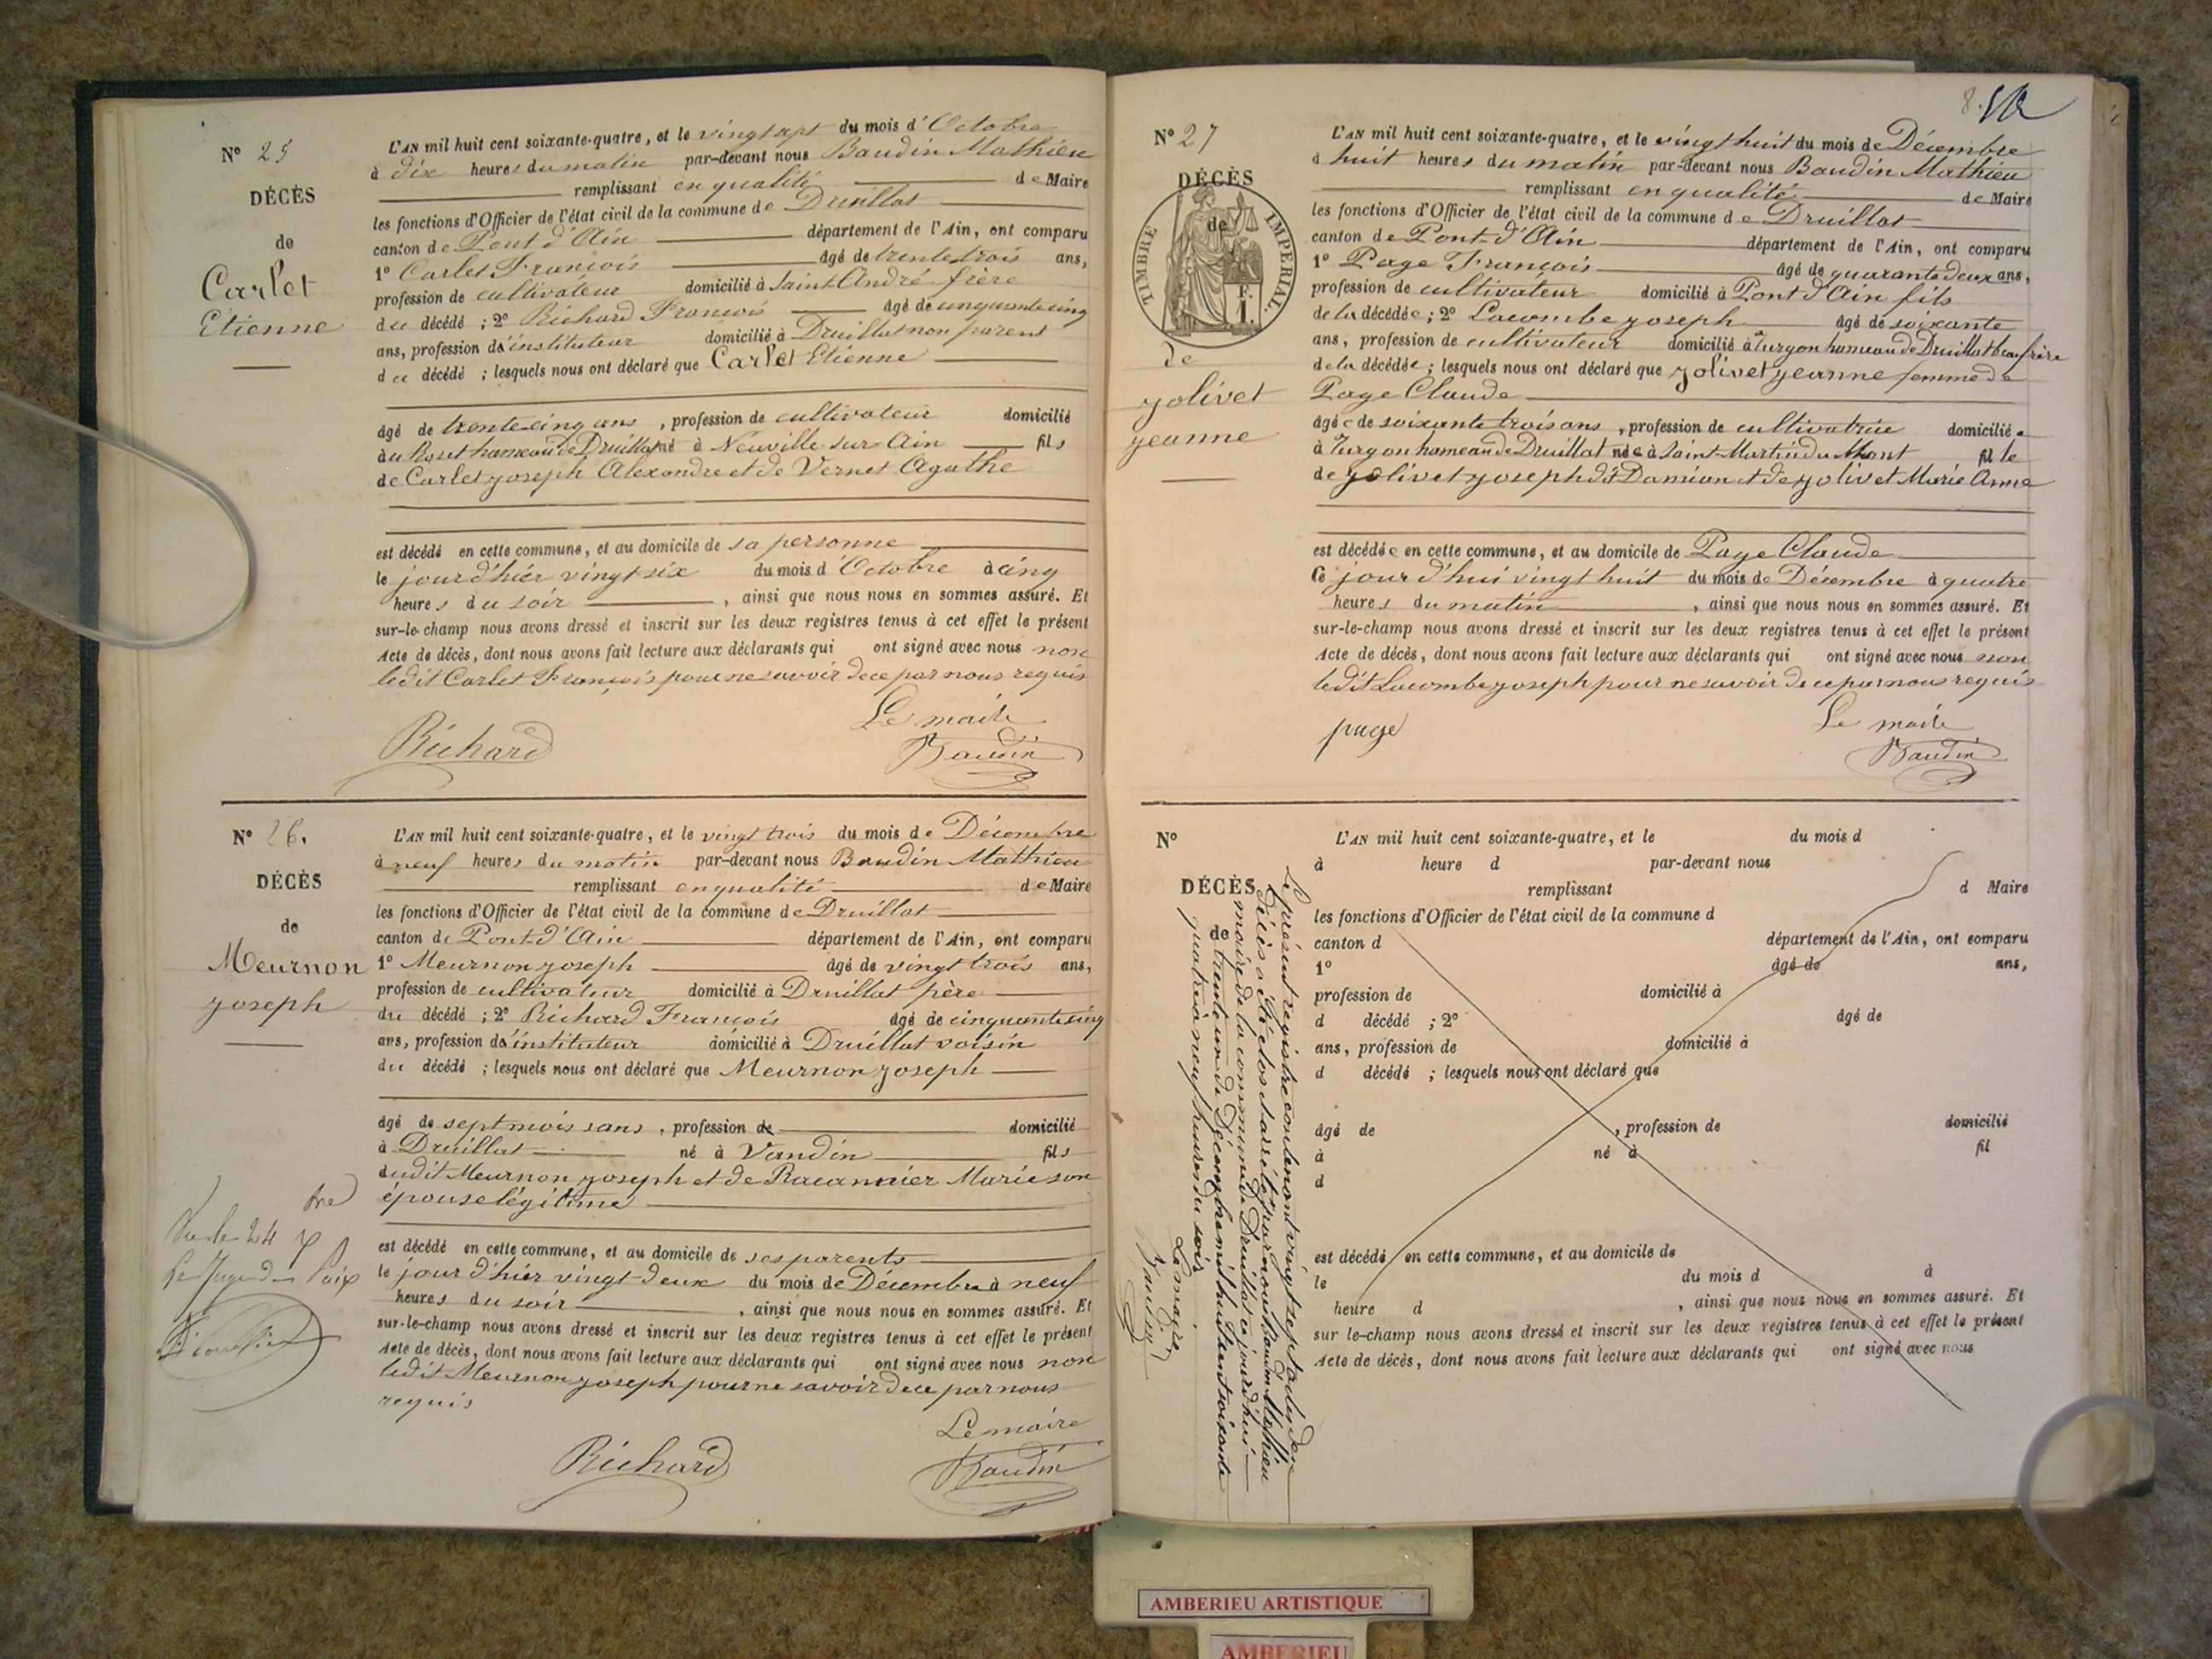 N° 25
DÉCÈS
de
Carlet
Etienne
L'AN mil huit cent soixante-quatre, et le vingt sept du mois d'Octobre
à dix heures du matin par-devant nous Baudin Mathieu
remplissant en qualité de Maire
les fonctions d'Officier de l'état civil de la commune de Druillat
canton de Pont d'Ain département de l'Ain, ont comparu
1° Carlet François âgé de trente trois ans,
profession de cultivateur domicilié à Saint André frère
du décédé ; 2° Richard François âgé de cinquante cinq
ans, profession d'instituteur domicilié à Druillat non parent
du décédé ; lesquels nous ont déclaré que Carlet Etienne
âgé de trente cinq ans, profession de cultivateur domicilié
au hameau de Druillat né à Neuville sur Ain fils
de Carlet joseph Alexandre et de Vernet Agathe
est décédé en cette commune, et au domicile de sa personne
le jour d'hier vingt six du mois d'Octobre à cinq
heures du soir, ainsi que nous nous en sommes assuré. Et
sur-le-champ nous avons dressé et inscrit sur les deux registres tenus à cet effet le présent
Acte de décès, dont nous avons fait lecture aux déclarants qui ont signé avec nous non
ledit Carlet François pour ne savoir de ce par nous requis
Le maire
Richard Baudin
N° 26.
DÉCÈS
de
Meurnon
joseph
L'AN mil huit cent soixante-quatre, et le vingt trois du mois de Décembre
à neuf heures du matin par-devant nous Baudin Mathieu
remplissant en qualité de Maire
les fonctions d'Officier de l'état civil de la commune de Druillat
canton de Pont d'Ain département de l'Ain, ont comparu
1° Meurnon joseph âgé de vingt trois ans,
profession de cultivateur domicilié à Druillat père
du décédé ; 2° Richard François âgé de cinquante cinq
ans, profession d'instituteur domicilié à Druillat voisin
du décédé ; lesquels nous ont déclaré que Meurnon joseph
âgé de sept mois sans, profession de domicilié
à Druillat né à Vandin fils
dudit Meurnon joseph et de Marie son
épouse légitime
est décédé en cette commune, et au domicile de ses parents
le jour d'hier vingt deux du mois de Décembre à neuf
heures du soir, ainsi que nous nous en sommes assuré. Et
sur-le-champ nous avons dressé et inscrit sur les deux registres tenus à cet effet le présent
Acte de décès, dont nous avons fait lecture aux déclarants qui ont signé avec nous non
ledit Meurnon joseph pour ne savoir de ce par nous
requis
Le maire
Richard Baudin
Vu le 24
Le Juge de Paix
N° 27
DÉCÈS
de
TIMBRE IMPERIAL.
F.
1.
de
jolivet
jeanne
L'AN mil huit cent soixante-quatre, et le vingt huit du mois de Décembre
à huit heures du matin par-devant nous Baudin Mathieu
remplissant en qualité de Maire
les fonctions d'Officier de l'état civil de la commune de Druillat
canton de Pont d'Ain département de l'Ain, ont comparu
1° Page François âgé de quarante deux ans,
profession de cultivateur domicilié à Pont d'Ain fils
de la décédée ; 2° Lacombe joseph âgé de soixante
ans, profession de cultivateur domicilié à Turgon hameau de Druillat beau frère
de la décédée ; lesquels nous ont déclaré que jolivet jeanne femme de
Page Claude
âgée de soixante trois ans, profession de cultivatrice domiciliée
à Turgon hameau de Druillat née à Saint Martin du Mont fille
de jolivet joseph dit Damian et de jolivet Marie Anne
est décédée en cette commune, et au domicile de Page Claude
Ce jour d'hui vingt huit du mois de Décembre à quatre
heures du matin, ainsi que nous nous en sommes assuré. Et
sur-le-champ nous avons dressé et inscrit sur les deux registres tenus à cet effet le présent
Acte de décès, dont nous avons fait lecture aux déclarants qui ont signé avec nous non
ledit Lacombe joseph pour ne savoir de ce par nous requis
Le maire
page Baudin
N°
DÉCÈS
de
L'AN mil huit cent soixante-quatre, et le du mois d
à heure d par-devant nous
remplissant d Maire
les fonctions d'Officier de l'état civil de la commune d
canton d département de l'Ain, ont comparu
1° âgé de ans,
profession de domicilié à
d décédé ; 2° âgé de
ans, profession de domicilié à
d décédé ; lesquels nous ont déclaré que
âgé de , profession de domicilié
à né à fil
d
est décédé en cette commune, et au domicile de
le du mois d à
heure d , ainsi que nous nous en sommes assuré. Et
sur le-champ nous avons dressé et inscrit sur les deux registres tenus à cet effet le présent
Acte de décès, dont nous avons fait lecture aux déclarants qui ont signé avec nous
Le présent registre contenant vingt sept actes de
Décès a été clos et arrêté par nous Baudin Mathieu
maire de la commune de Druillat ce jourd'hui
trente un de Décembre mil huit cent soixante
quatre à neuf heures du soir
Le maire
Baudin
AMBERIEU ARTISTIQUE
AMBERIEU